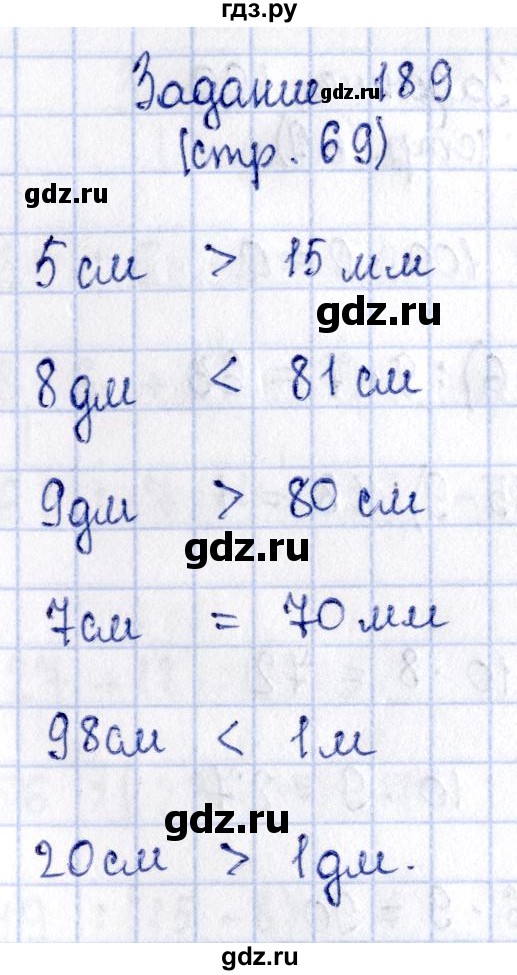 гдз.ру
Задание 189
gdz.ru
(стр. 69)
gdz.ru
5 см > 15 мм
gdz.ru
8 дм < 81 см
9 дм > 80 см
gdz.ru
7 см = 70 мм
98 см < 1 м
gdz.ru
20 см > 1 дм.
gdz.ru